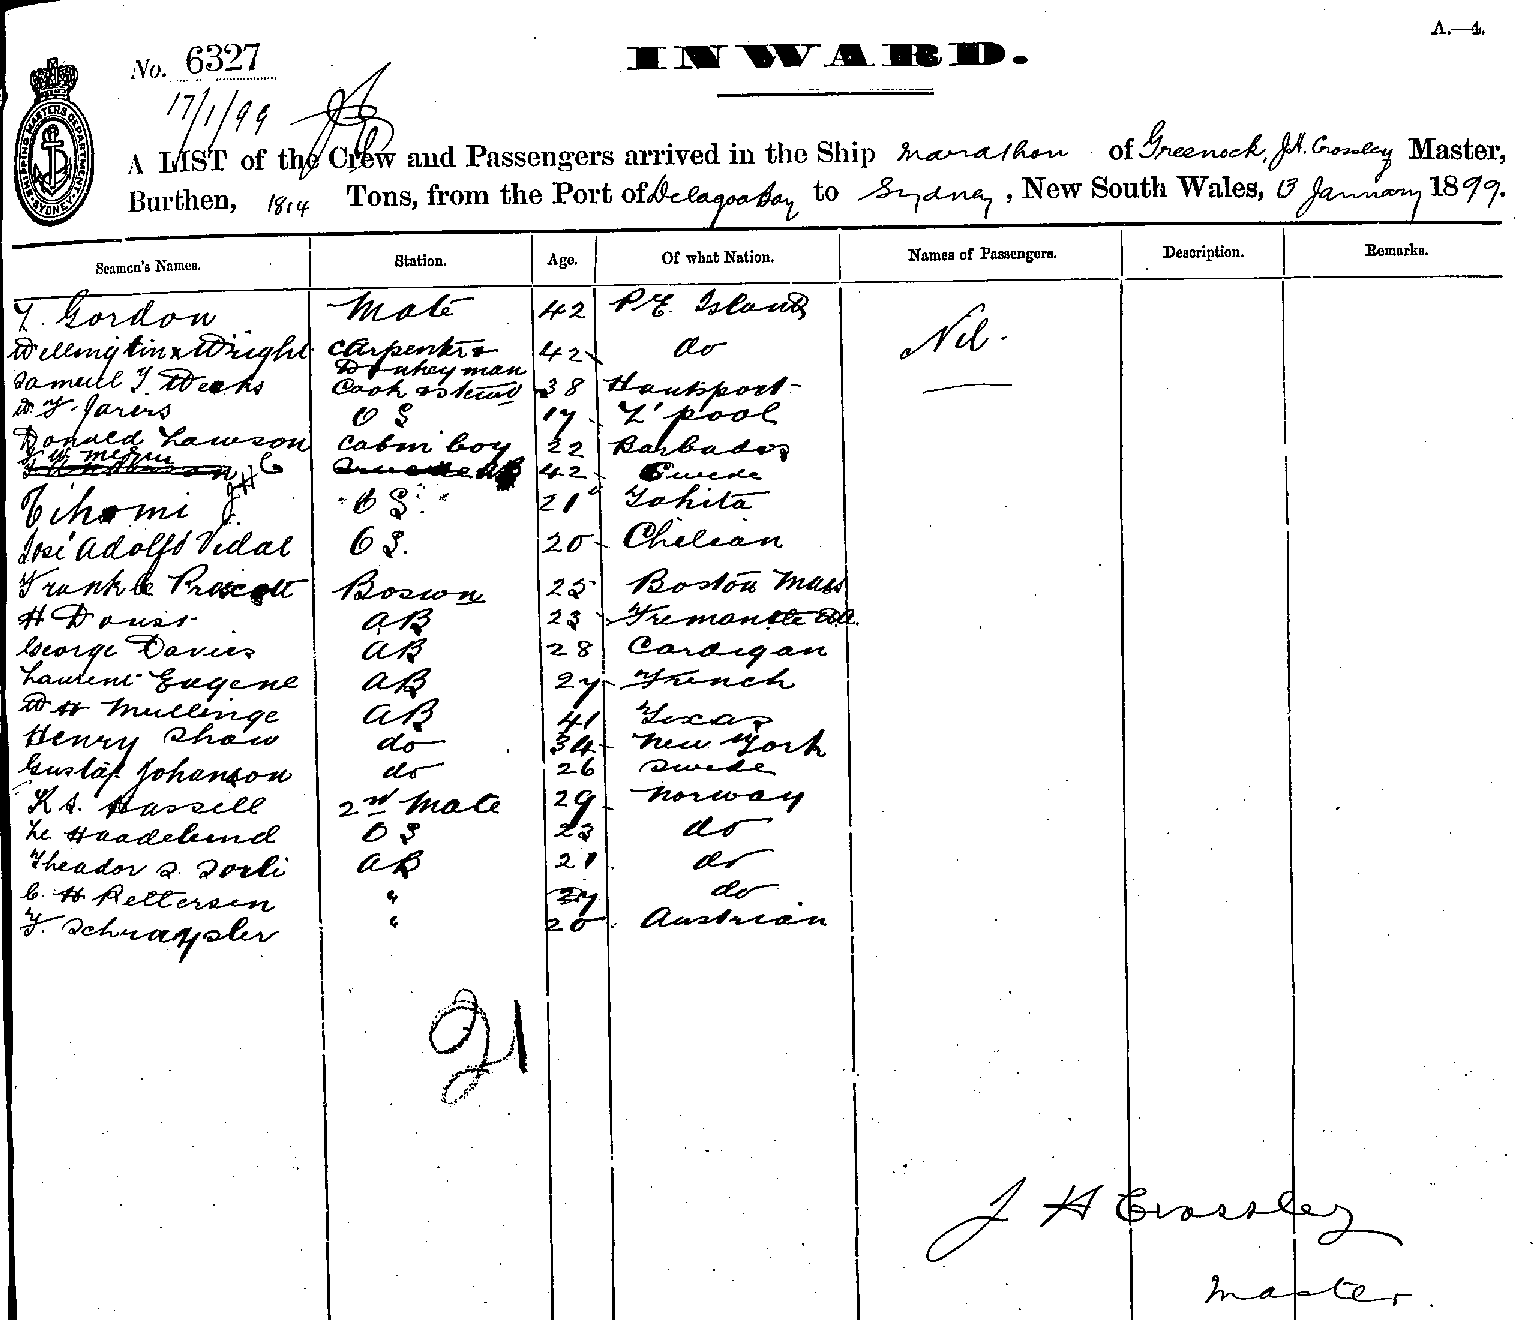 A.—4.
No. 6327
INWARD.
17/1/99
SHIPPING MASTERS DEPARTMENT SYDNEY
A LIST of the Crew and Passengers arrived in the Ship Marathon of Greenock, J.H. Crossley Master,
Burthen, 1814 Tons, from the Port of Delagoa Bay to Sydney, New South Wales, 13 January 1899.
Seamen's Names. Station. Age. Of what Nation. Names of Passengers. Description. Remarks.
Gordon Mate 42 P E Island Nil.
Wellington Wright Carpenter & 42 do
Donkeyman
Samuel Weeks Cook & Stewd 38 Hantsport
O S 17 L'pool
Donald Lawson Cabin boy 22 Barbados
42 Swede
Tihomi J H C O S. 21 Tahita
José Adolfo Vidal O S. 20 Chilian
Frank Prescott Boswn 25 Boston Mass
H AB 23 Fremantle
George Davies AB 28 Cardigan
Laurent Eugene AB 27 French
W H Mullinge AB 41 Texas
Henry Shaw do 34 New York
Gustaf Johanson do 26 Swede
K. Hassell 2nd Mate 29 Norway
O S 23 do
Theador S. Sorli AB 21 do
C. H Pettersen " 27 do
" 20 Austrian
21
J H Crossley
Master.